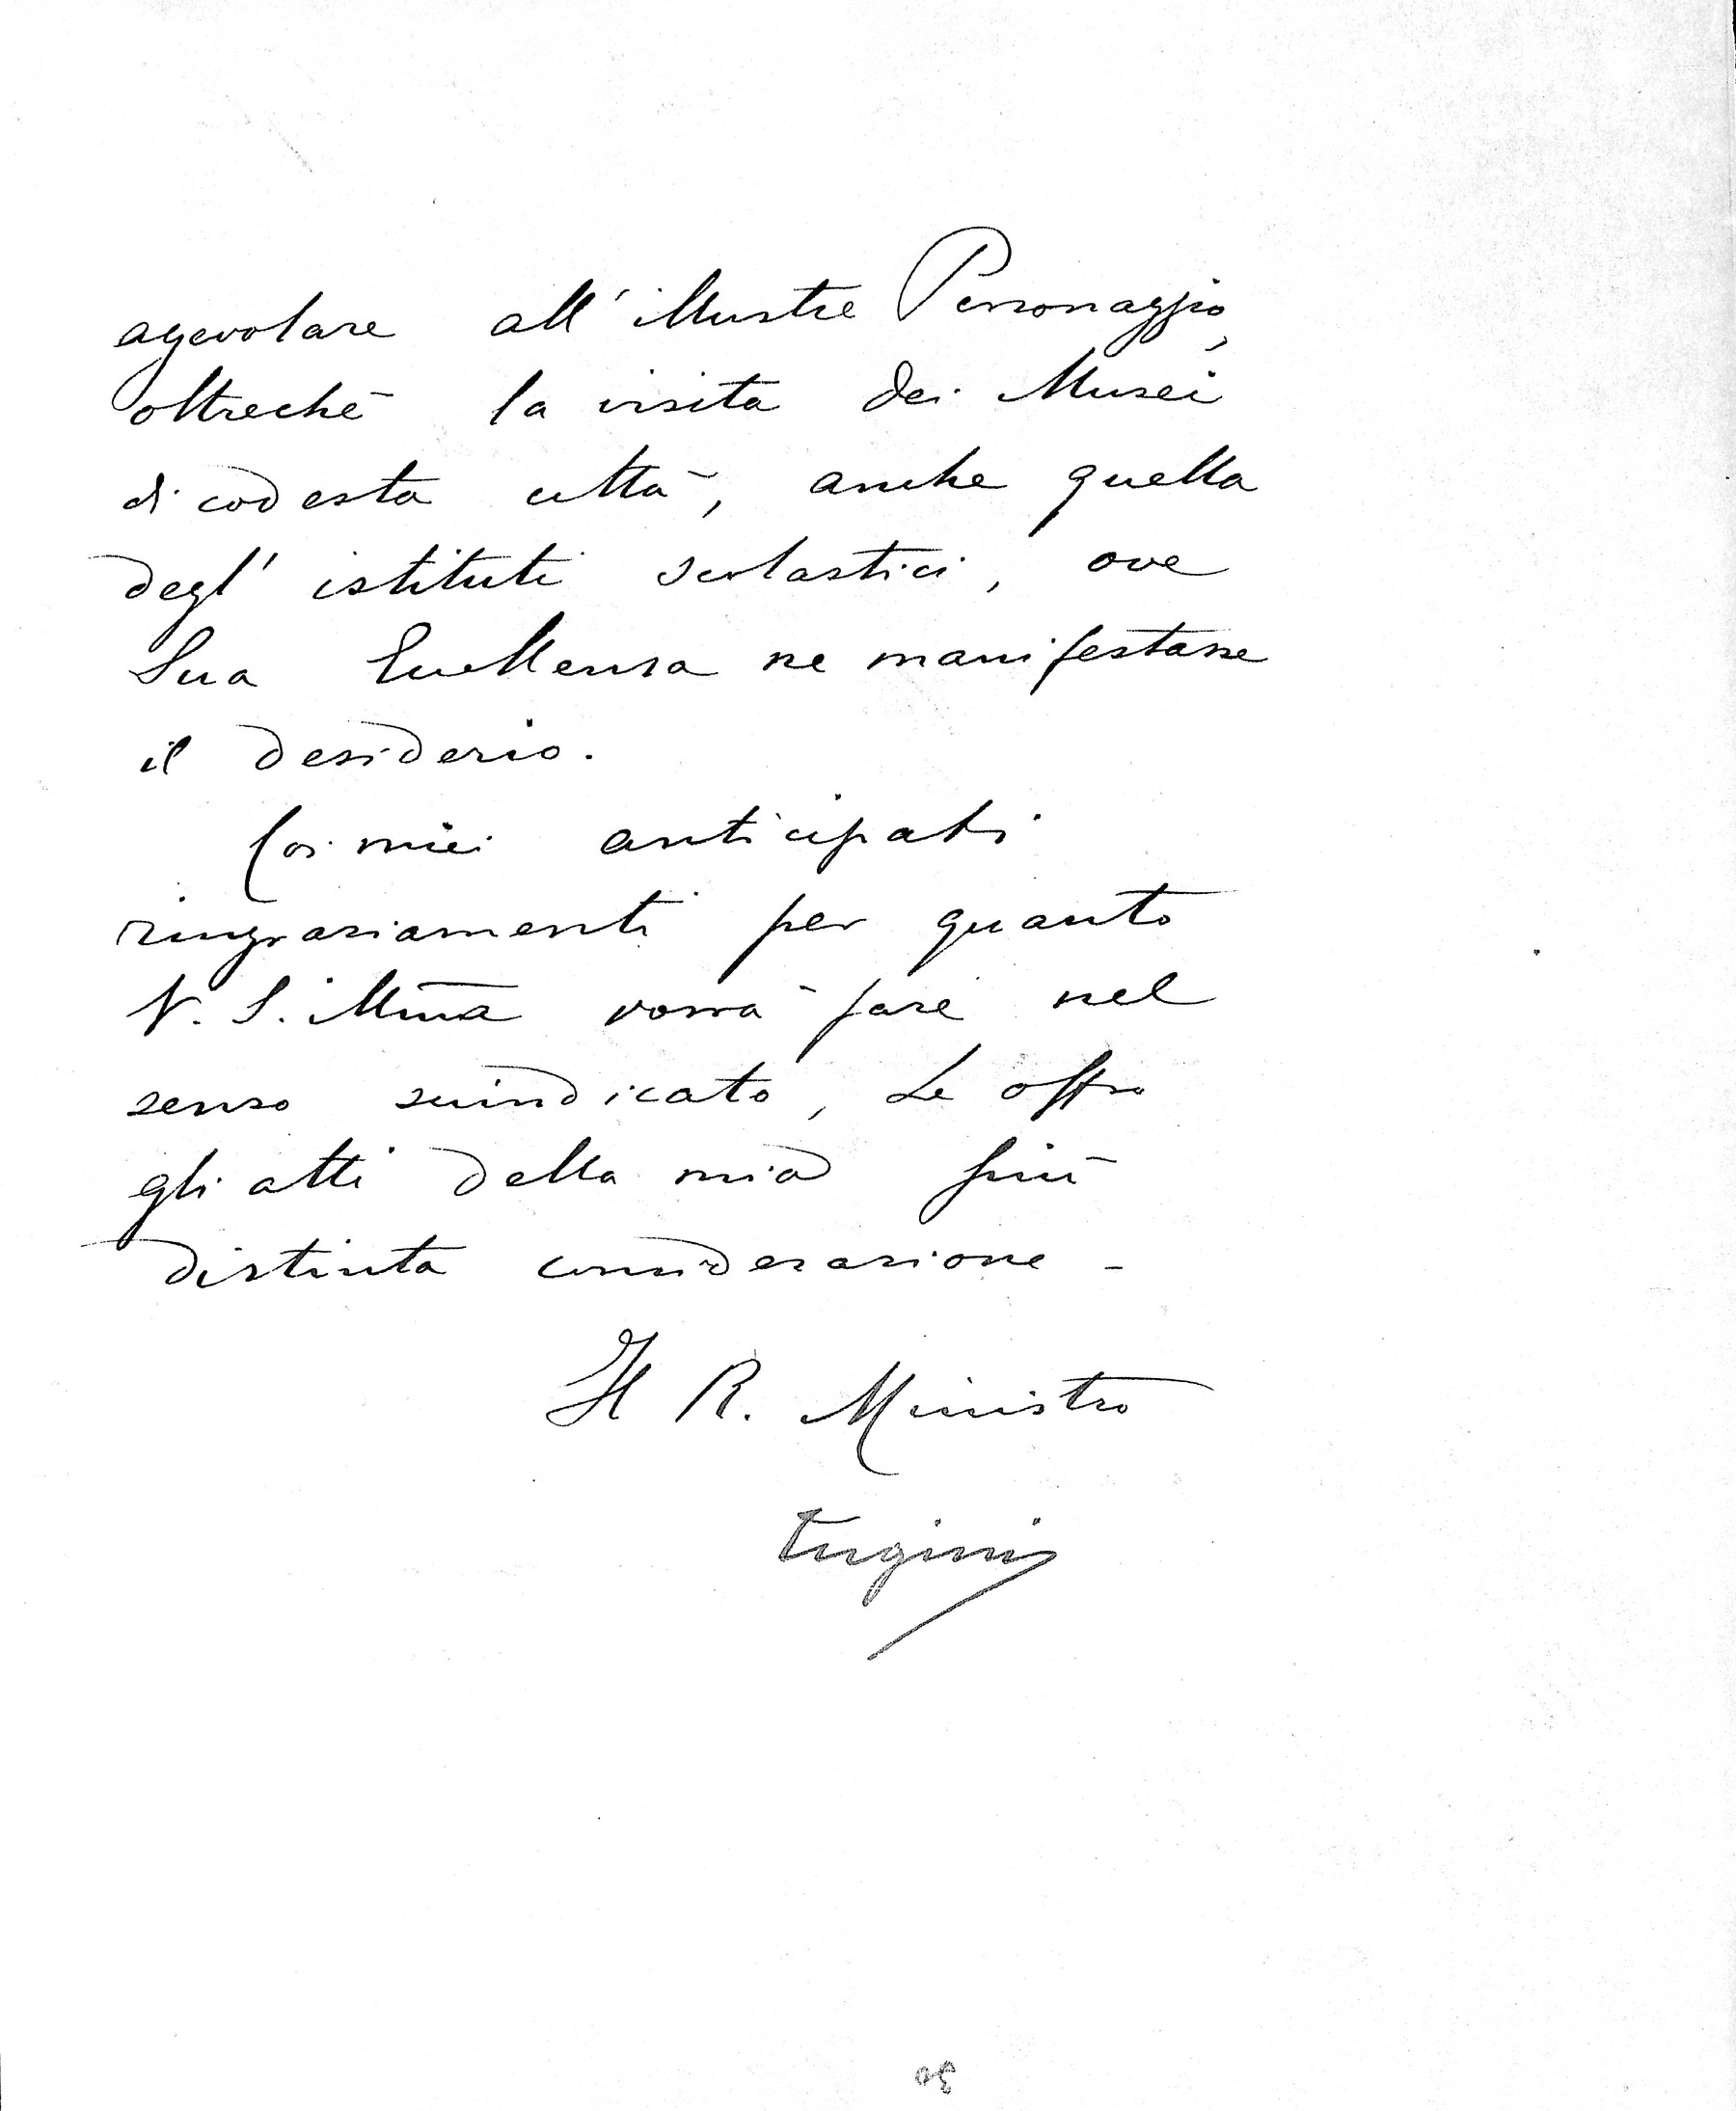 agevolare all'illustre Personaggio,
oltrechè la visita dei Musei
di codesta città, anche quella
degl'istituti scolastici, ove
Sua Eccellenza ne manifestasse
il desiderio.
Coi miei anticipati
ringraziamenti per quanto
V. S. Illm̃a vorrà fare nel
senso suindicato, Le offro
gli atti della mia più
distinta considerazione -
Il R. Ministro
Tugini